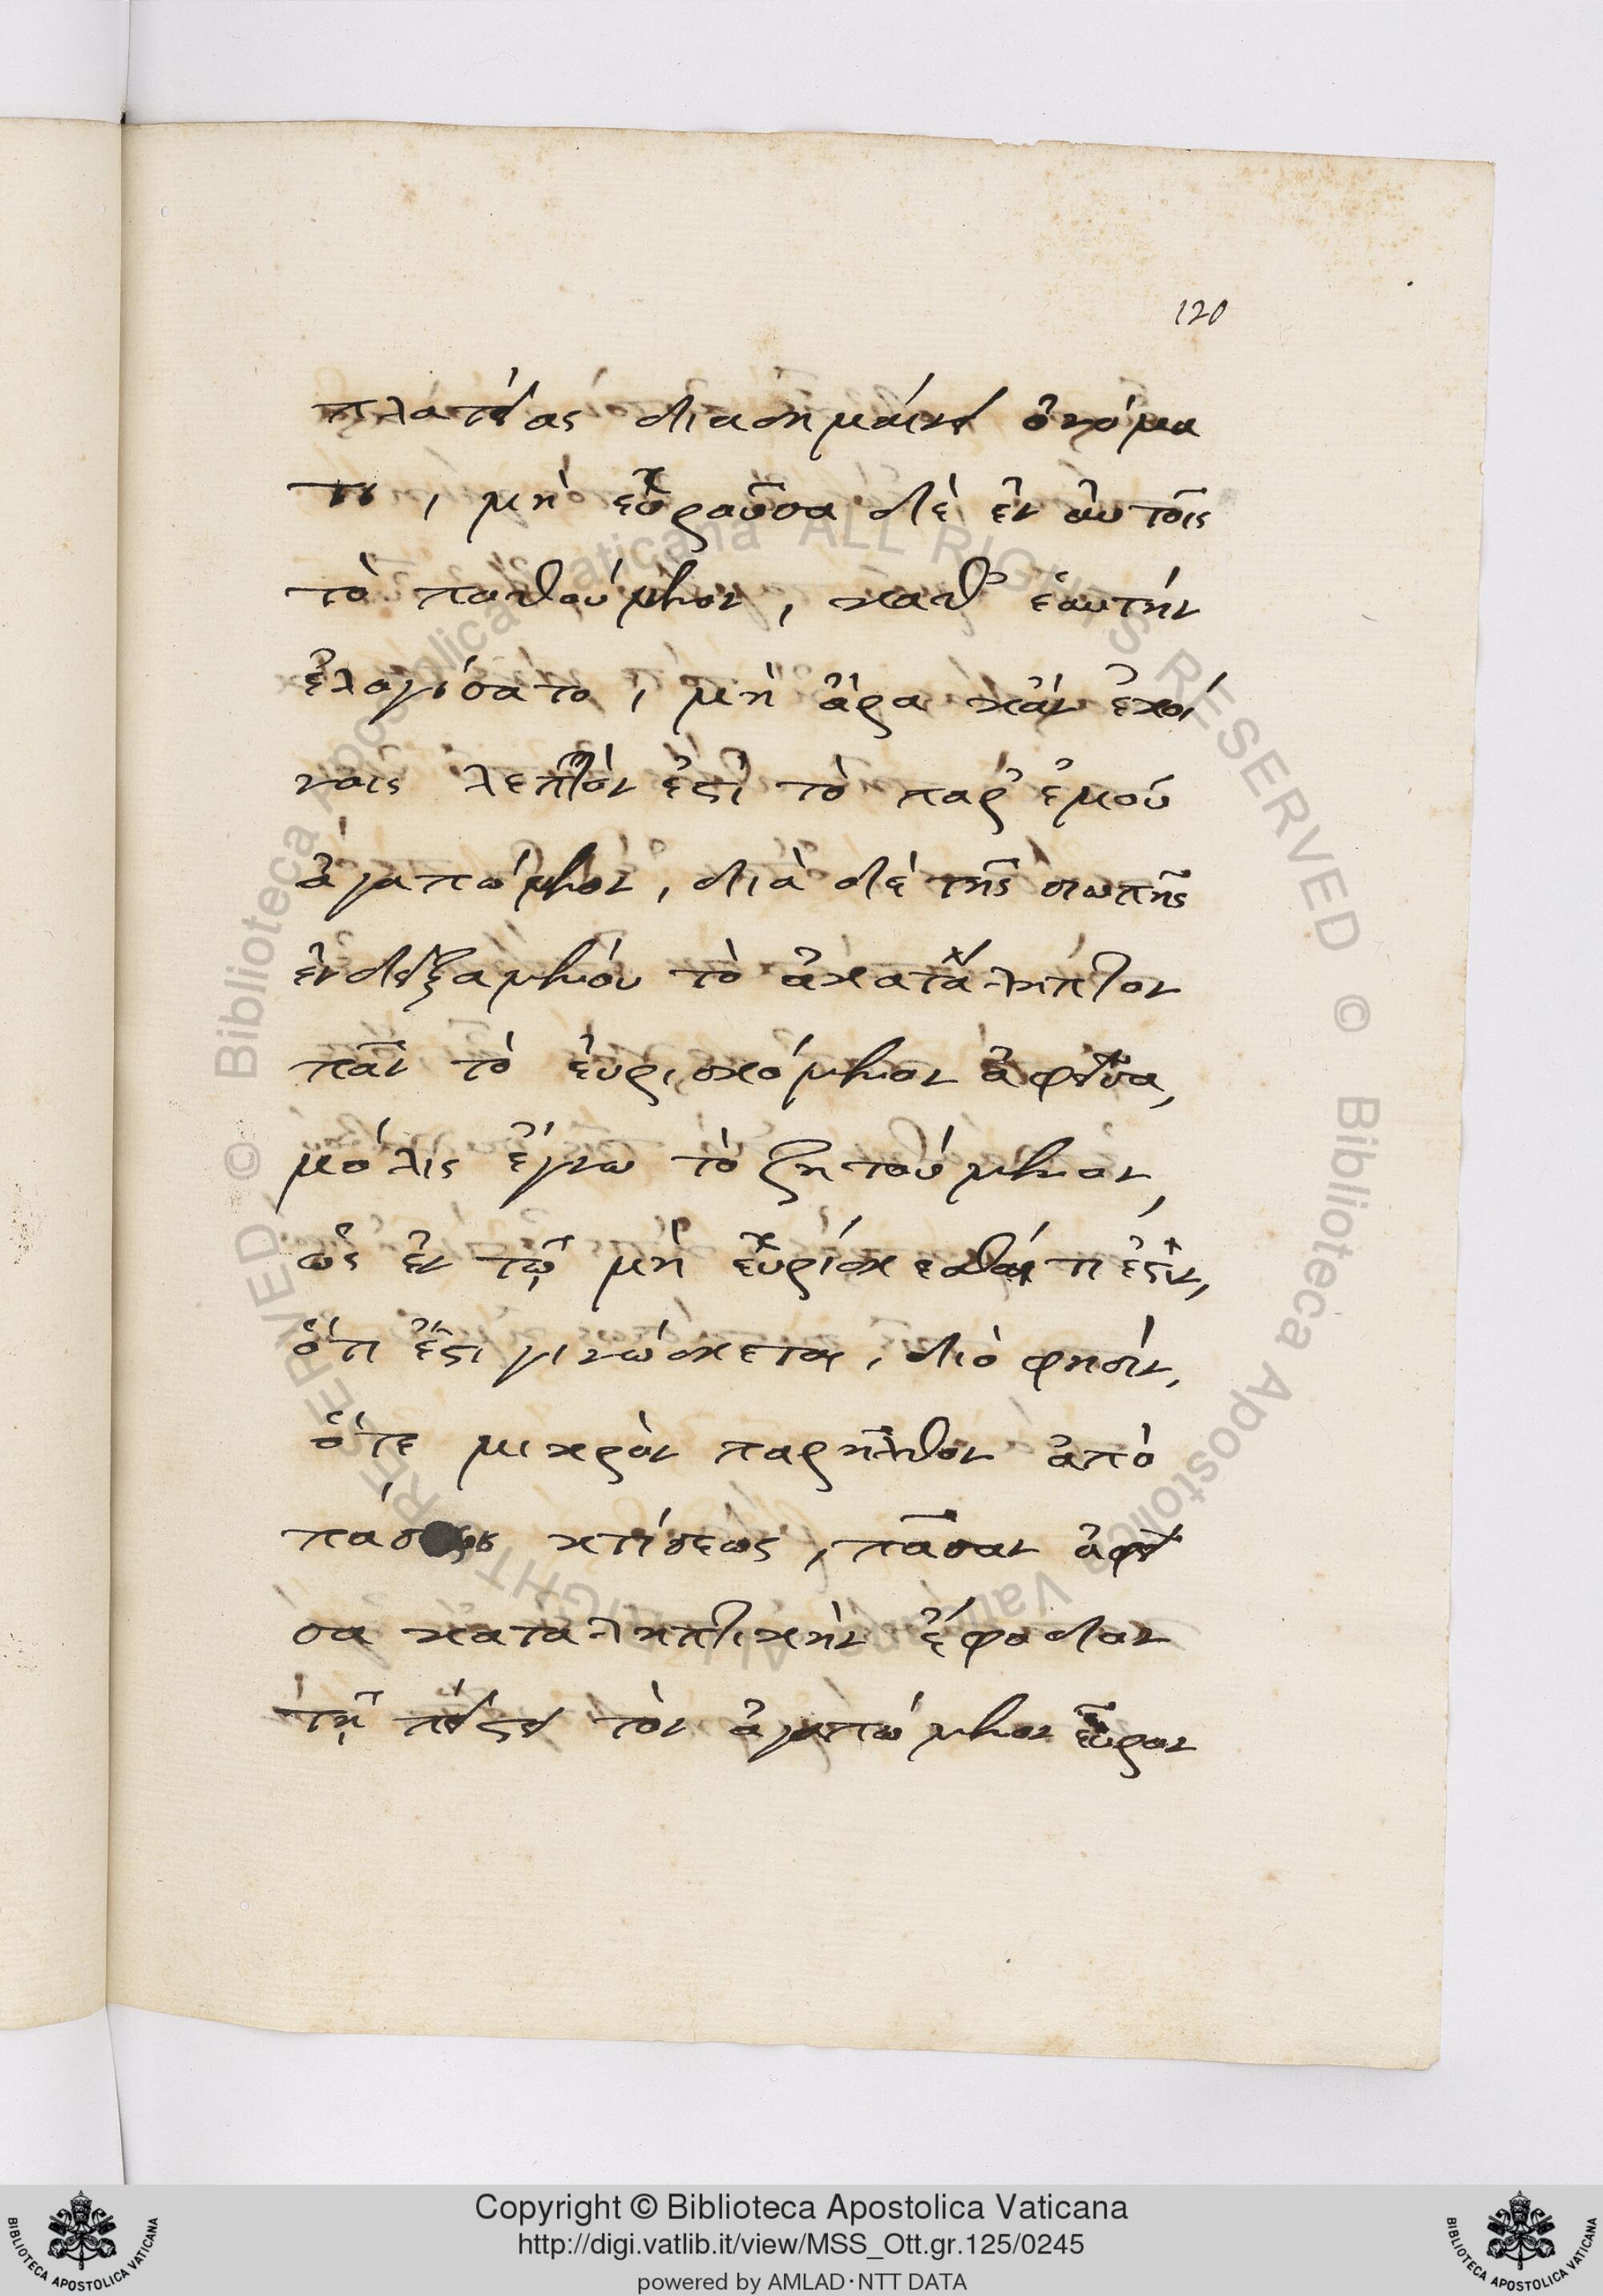 120
πλατείας διασημαίνει ὀνόμα
τι, μὴ εὑροῦσα δὲ ἐν αὐτοῖς
τὸ ποθούμενον, καθ' ἑαυτὴν
ἐλογίσατο, μὴ ἄρα κἂν ἐκεί
νοις λεπτόν ἐστι τὸ παρ' ἐμοῦ
ἀγαπώμενον, διὰ δὲ τῆς σιωπῆς
ἐνδειξαμένου τὸ ἀκατάληπτον
πᾶν τὸ εὑρισκόμενον ἀφεῖσα,
μόλις ἔγνω τὸ ζητούμενον,
ὡς ἐν τῷ μὴ εὑρίσκεσθαι τί ἐστιν,
ὅτι ἔστι γινώσκεται, διό φησιν,
ὅτε μικρὸν παρῆλθον ἀπὸ
κτίσεως, πᾶσαν ἀφεῖ
σα καταληπτικὴν ἔφοδον
τῇ πίστει τὸν ἀγαπώμενον εὗρον
Biblioteca Apostolica Vaticana ALL RIGHTS RESERVED ©
Copyright © Biblioteca Apostolica Vaticana
http://digi.vatlib.it/view/MSS_Ott.gr.125/0245
powered by AMLAD·NTT DATA
BIBLIOTECA APOSTOLICA VATICANA
BIBLIOTECA APOSTOLICA VATICANA